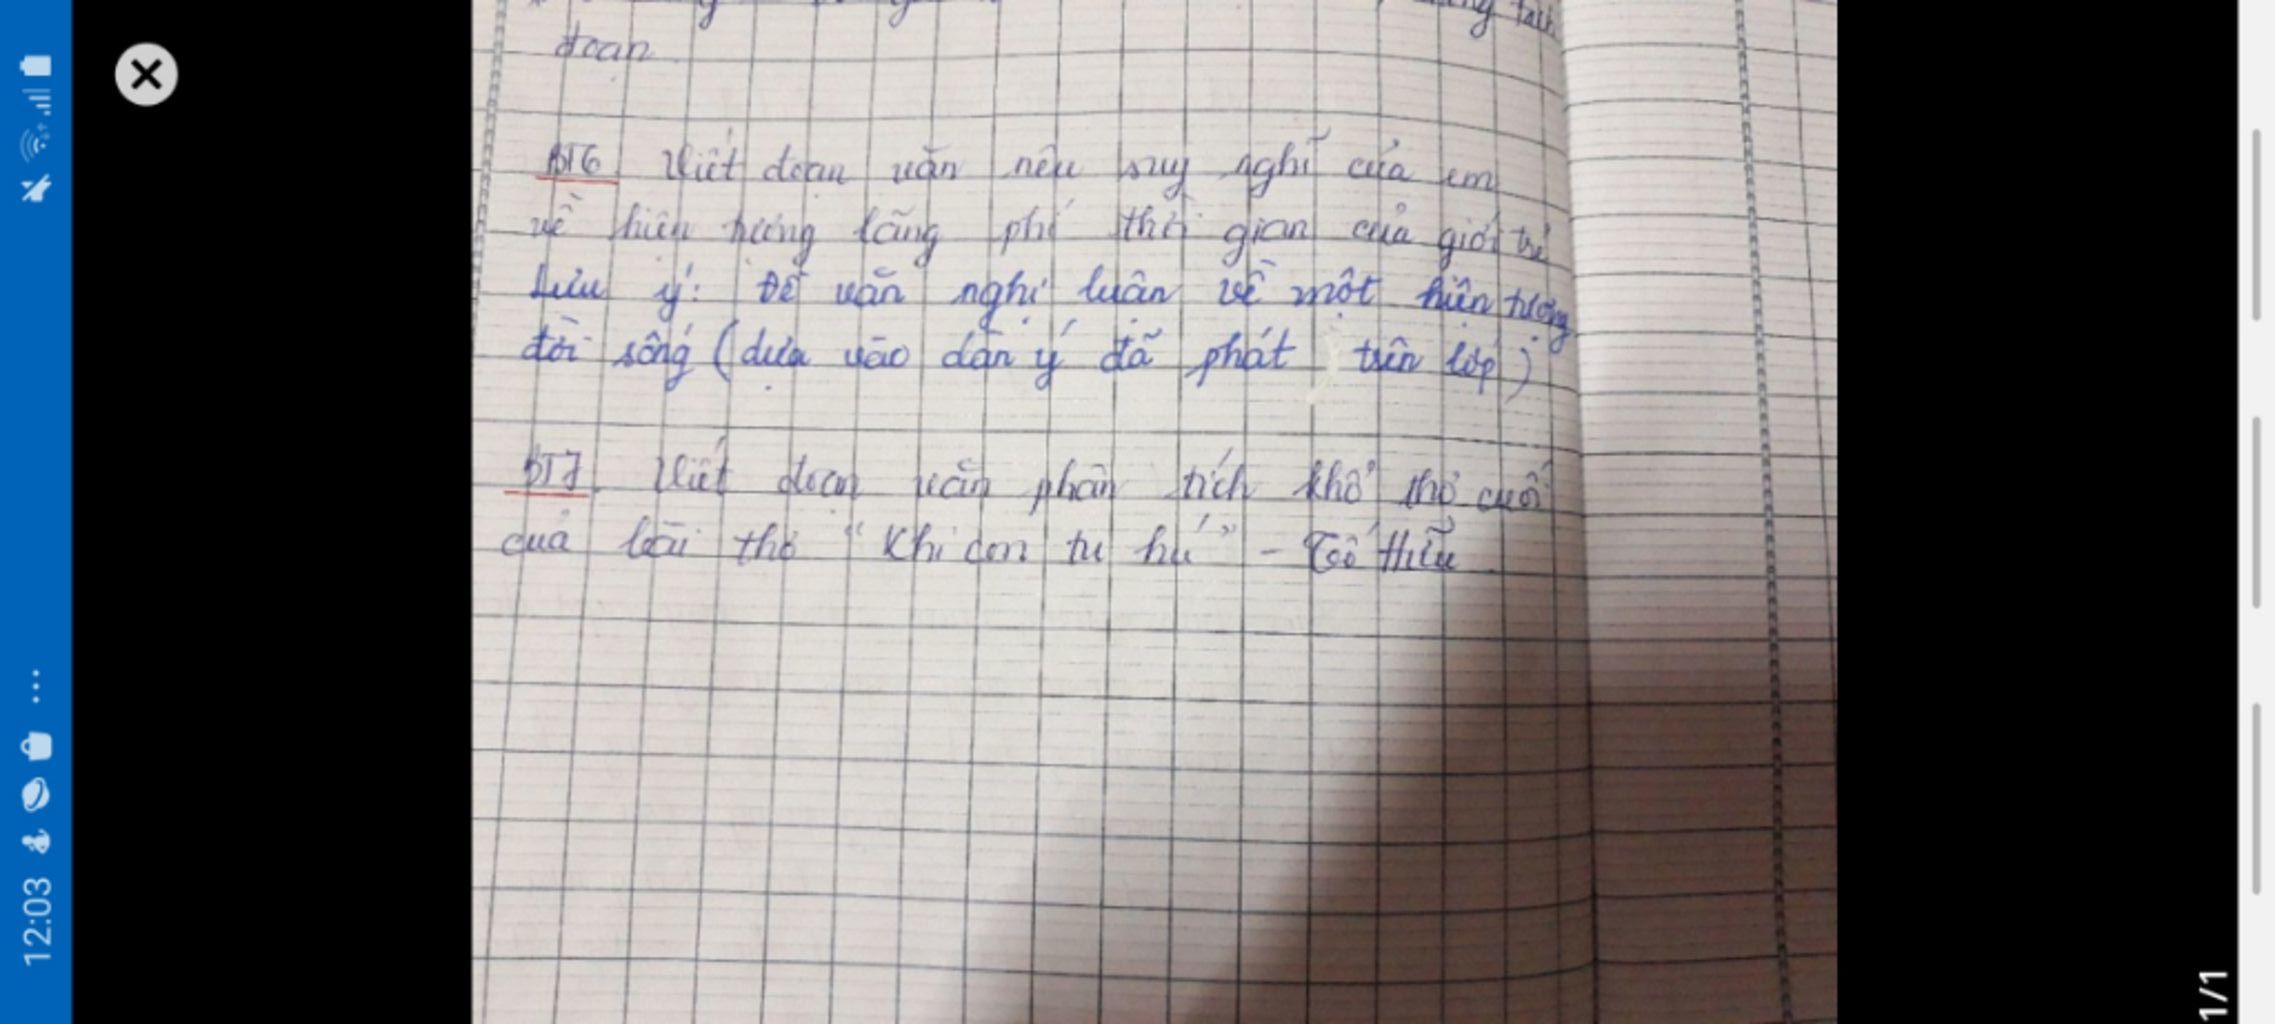 đoạn.
BT6. Viết đoạn văn nêu suy nghĩ của em
về hiện tượng lãng phí thời gian của giới trẻ
Lưu ý: Đề văn nghị luận về một hiện tượng
đời sống (dựa vào dàn ý đã phát trên lớp)
BT7. Viết đoạn văn phân tích khổ thơ cuối
của bài thơ "Khi con tu hú" - Tố Hữu.
12:03
1/1